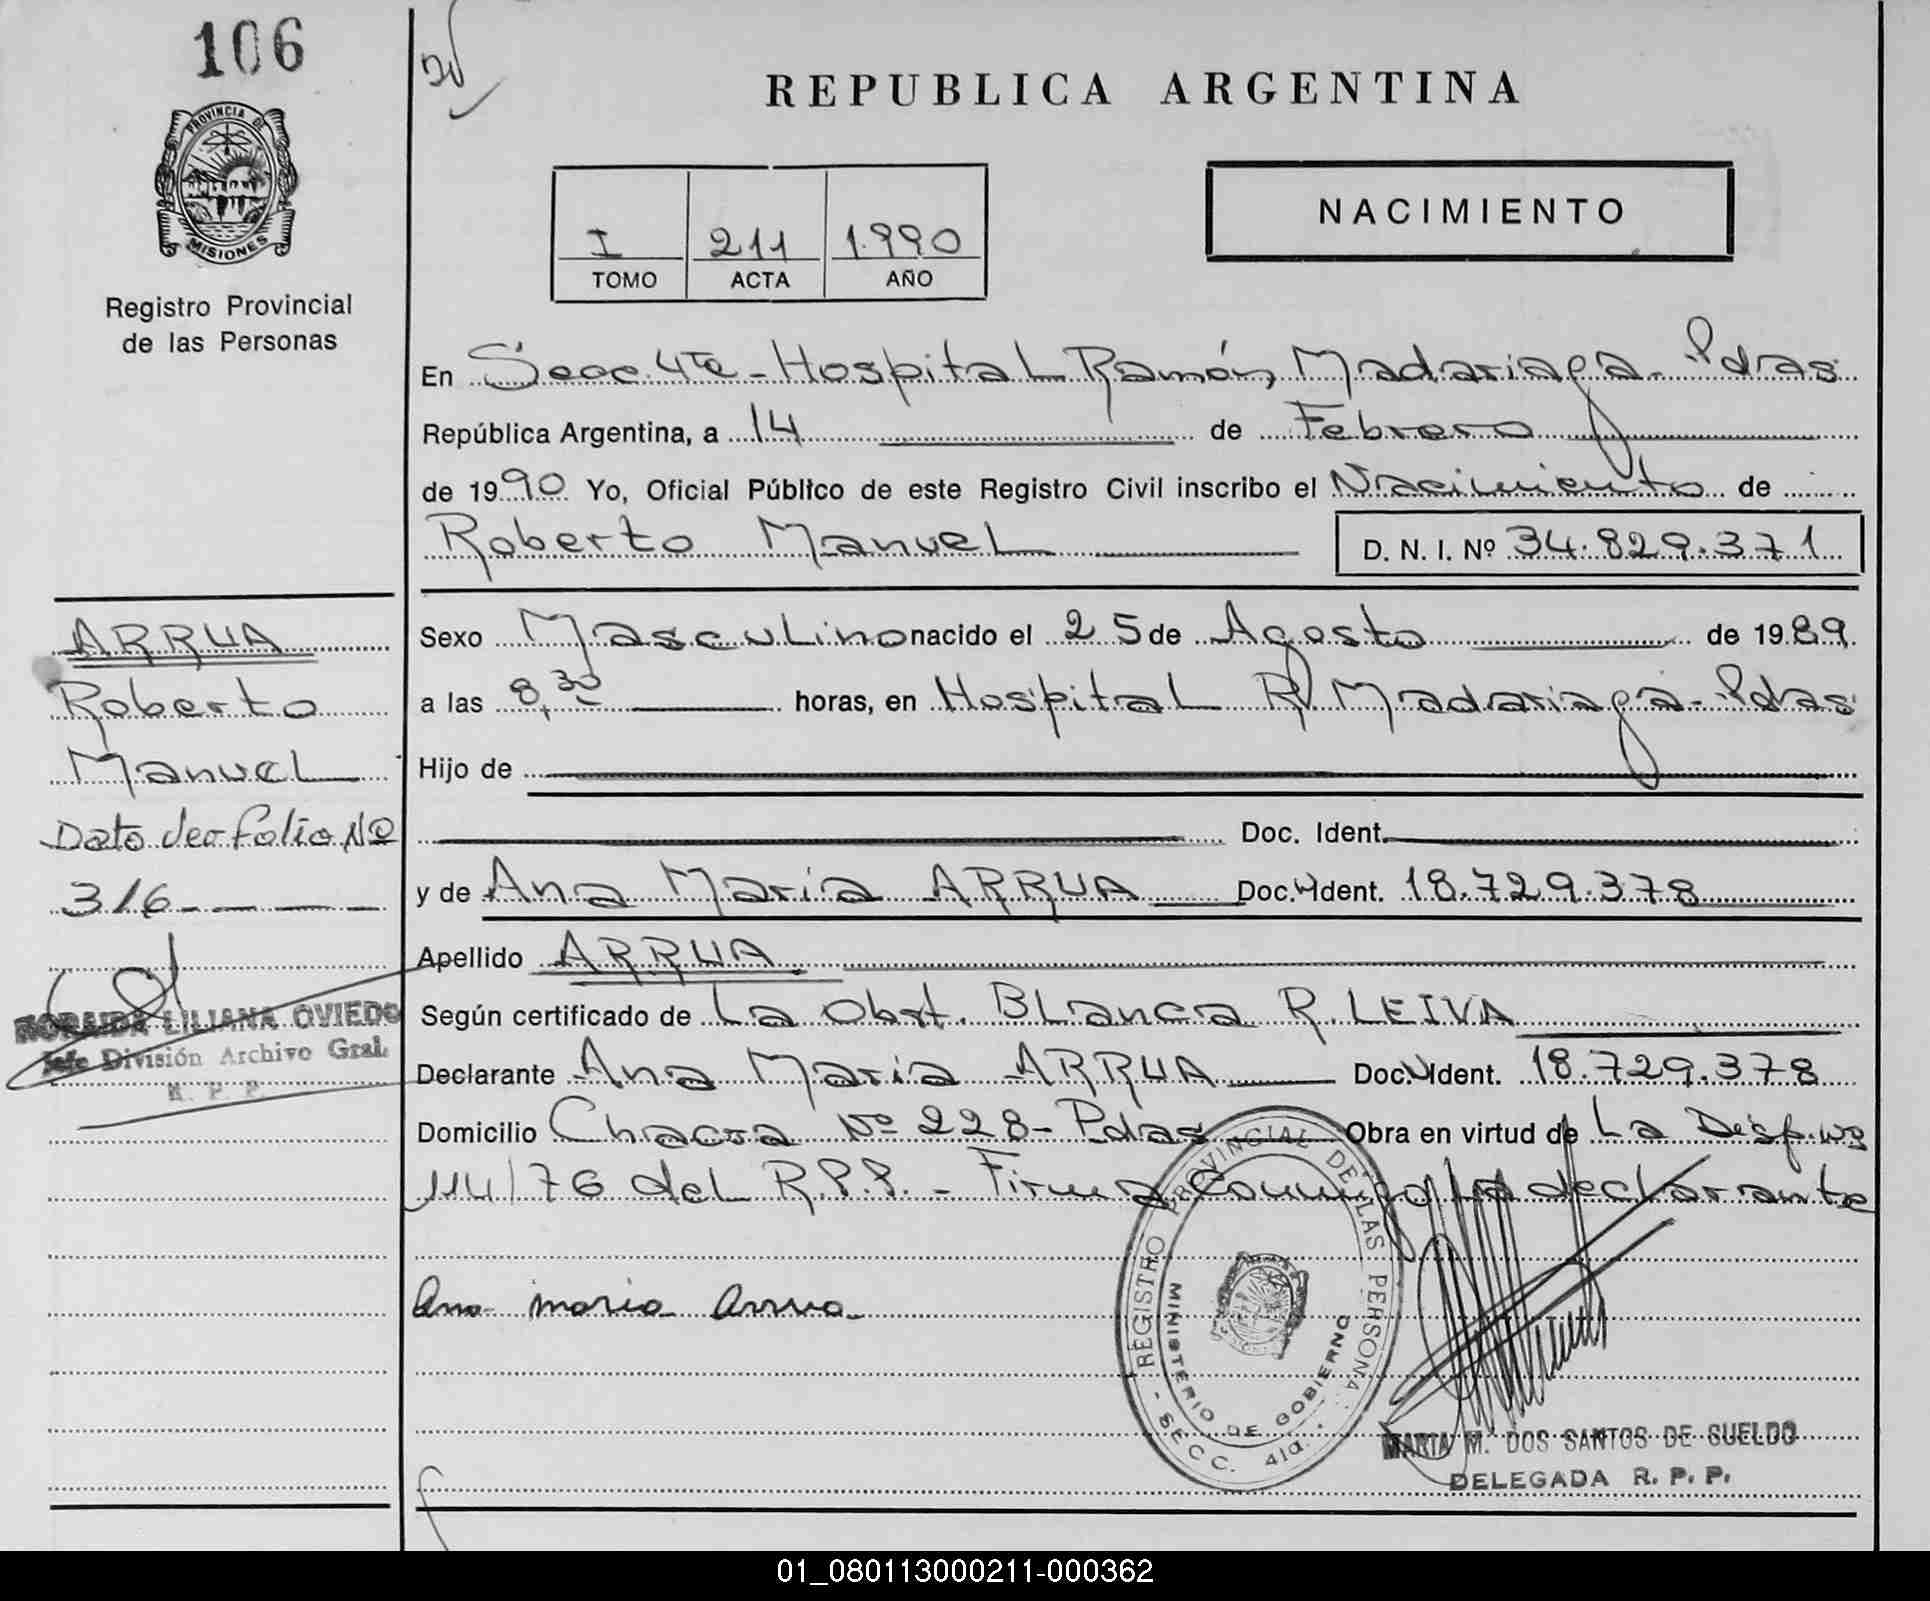 106
PROVINCIA DE
MISIONES
Registro Provincial
de las Personas
REPUBLICA ARGENTINA
I 211 1.990
TOMO ACTA AÑO
NACIMIENTO
En Secc. 4ta - Hospital Ramón Madariaga - Pdas
República Argentina, a 14 de Febrero
de 1990 Yo, Oficial Público de este Registro Civil inscribo el Nacimiento de
Roberto Manuel D. N. I. Nº 34.829.371
Sexo Masculino nacido el 25 de Agosto de 1989
a las 8,30 horas, en Hospital R. Madariaga - Pdas
Hijo de
Doc. Ident.
y de Ana Maria ARRUA Doc. Ident. 18.729.378
Apellido ARRUA
Según certificado de La Obst. Blanca R. LEIVA
Declarante Ana Maria ARRUA Doc. Ident. 18.729.378
Domicilio Chacra Nº 228 - Pdas Obra en virtud de La Disp. Nº
114/76 del R.P.P. - Firma conmigo la declarante
Ana maria Arrua
ARRUA
Roberto
Manuel
Dato ver folio Nº
316
LILIANA OVIEDO
Jefe División Archivo Gral.
R. P. P.
REGISTRO PROVINCIAL DE LAS PERSONAS
MINISTERIO DE GOBIERNO
SECC. 4ta.
MARIA M. DOS SANTOS DE SUELDO
DELEGADA R. P. P.
01_080113000211-000362